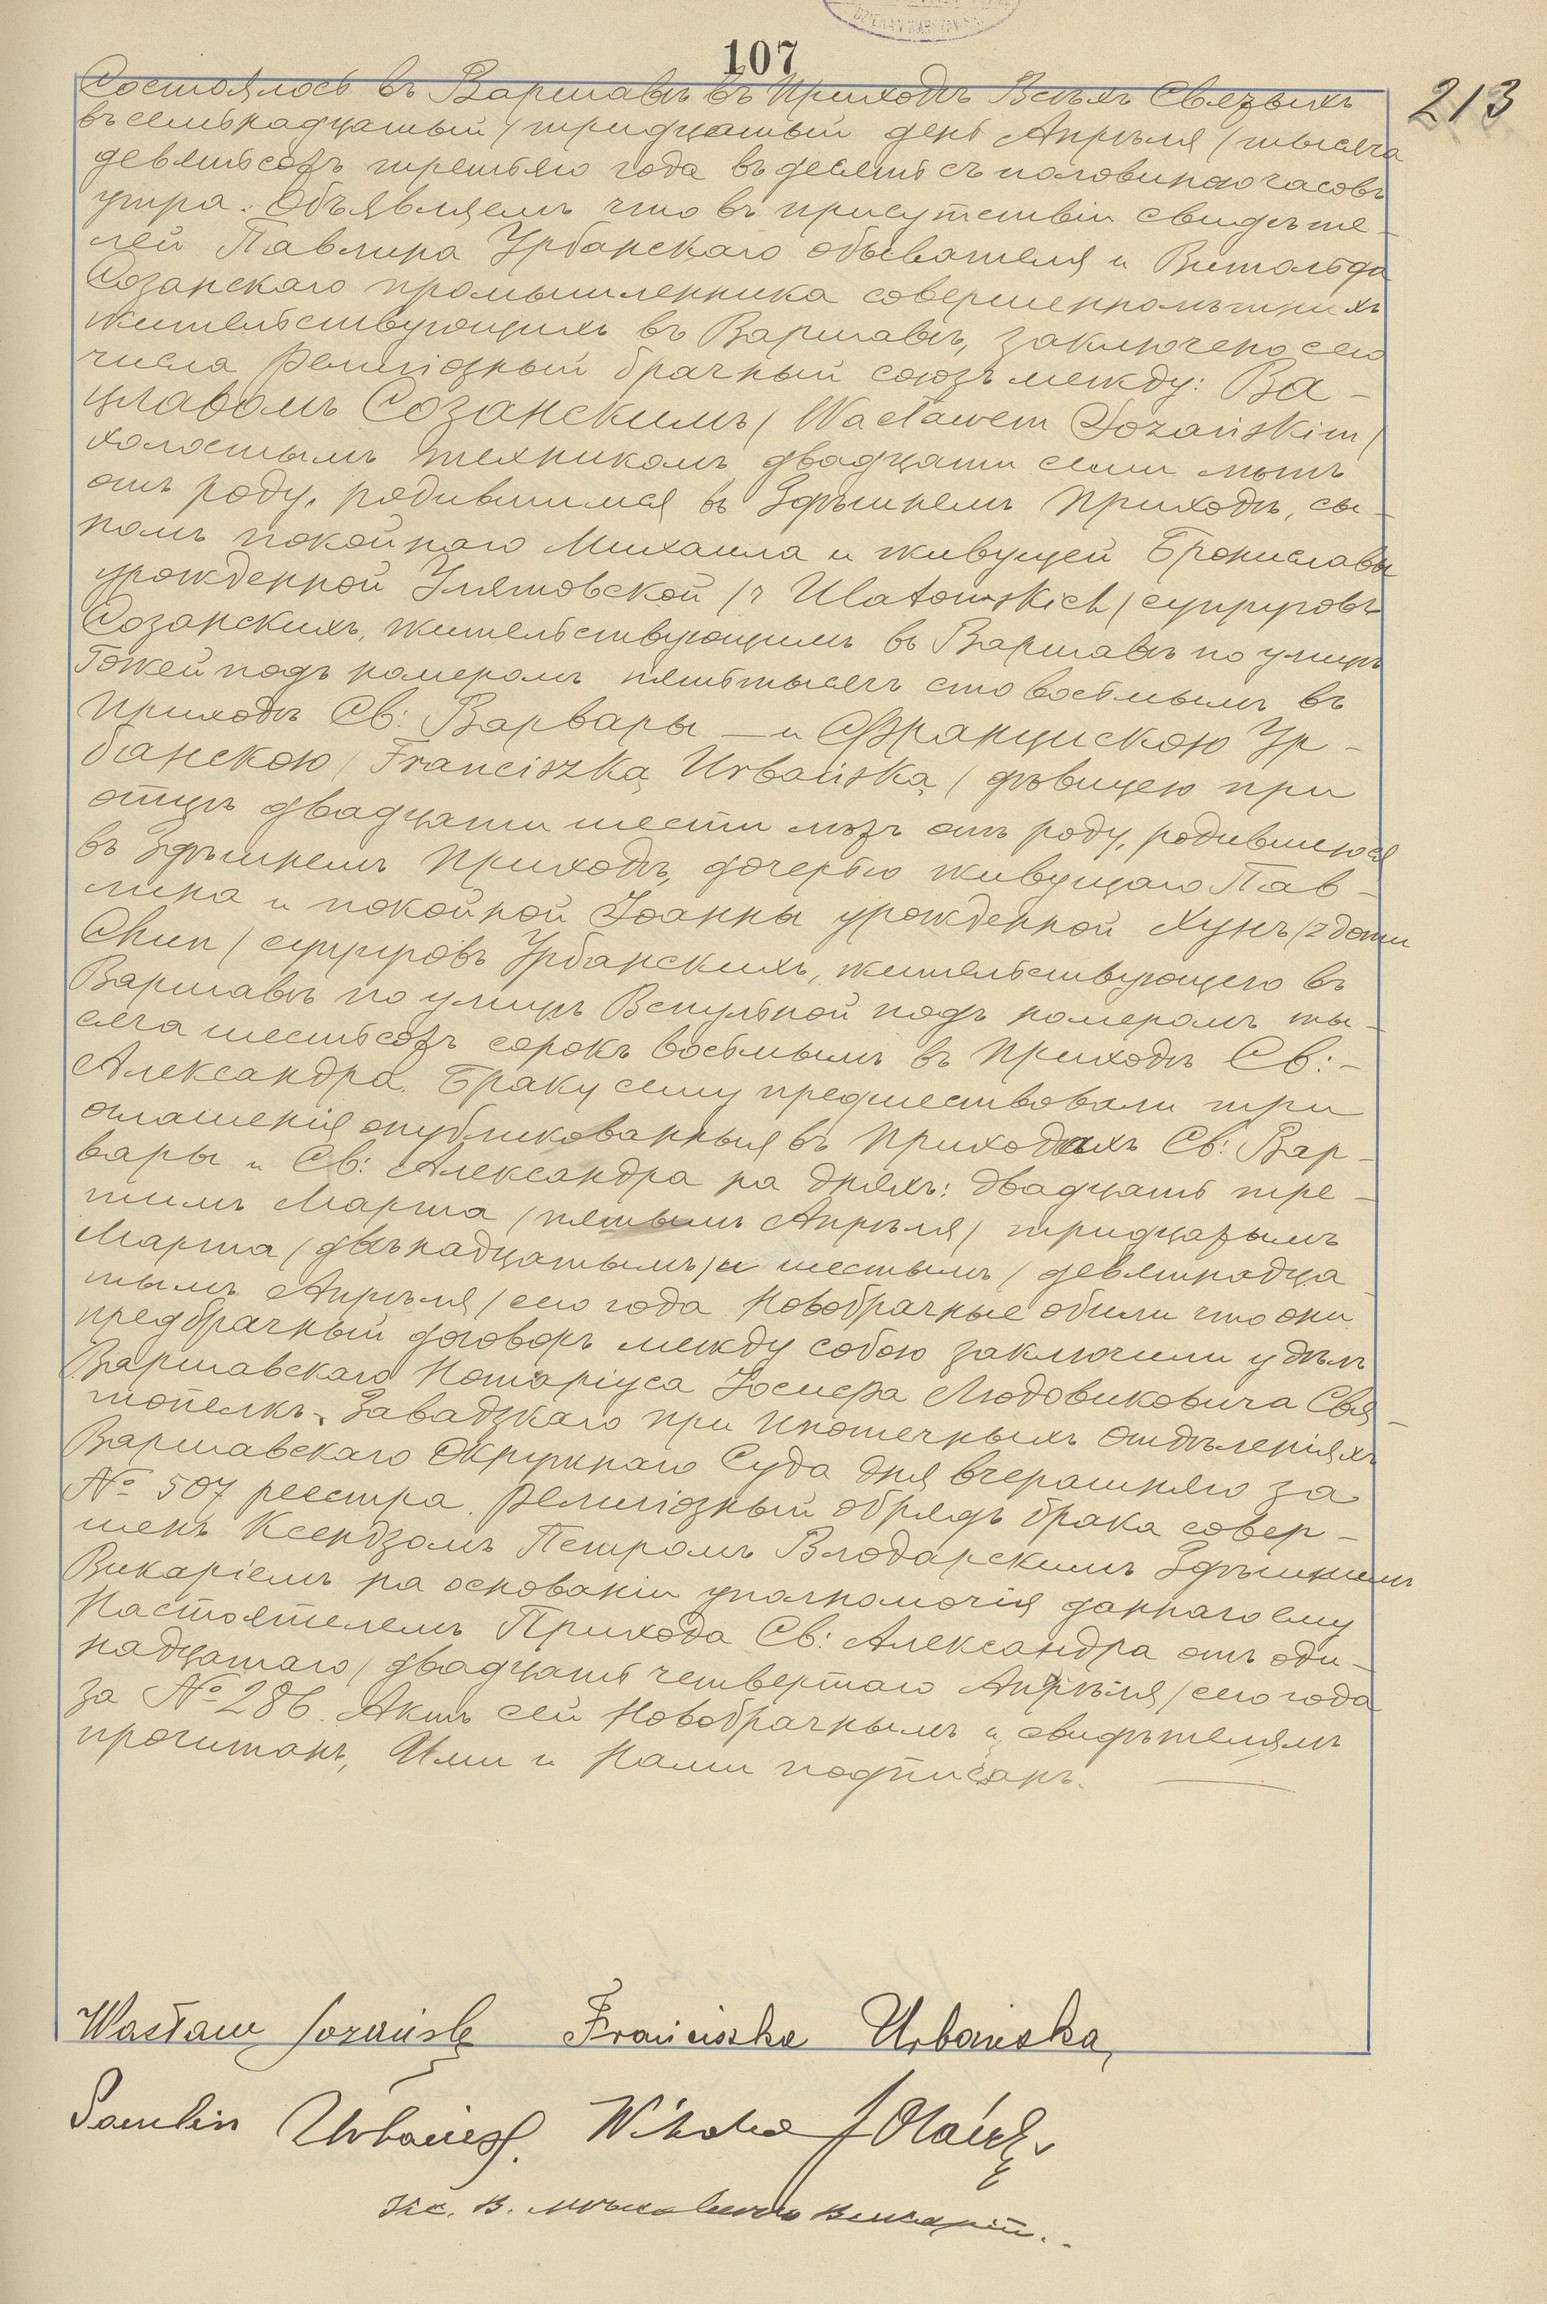 107
213
Состоялось въ Варшавѣ въ Приходѣ Всѣхъ Святыхъ
въ семьнадцатый / тридцатый день Апрѣля / тысяча
девятьсотъ третьяго года въ десять съ половиною часовъ
утра. Объявляемъ что въ присутствіи свидѣте-
лей Павлина Урбанскаго обывателя и Витольда
Созанскаго промышленника совершеннолѣтнихъ
жительствующихъ въ Варшавѣ, заключено сего
числа религіозный брачный союзъ между: Ва-
цлавомъ Созанскимъ / Wacławem Sozańskim /
холостымъ техникомъ двадцати семи лѣтъ
отъ роду, родившимся въ Здѣшнемъ Приходѣ, сы-
номъ покойнаго Михаила и живущей Брониславы
урожденной Улятовской / z Ulatowskich / супруговъ
Созанскихъ, жительствующимъ въ Варшавѣ по улицѣ
Гожей подъ номеромъ пятьтысячъ сто восьмымъ въ
Приходѣ Св: Варвары — и Францискою Ур-
банскою / Franciszką Urbańską / дѣвицею при
отцѣ двадцати шести лѣтъ отъ роду, родившеюся
въ Здѣшнемъ Приходѣ, дочерью живущаго Пав-
лина и покойной Іоанны урожденной Хунъ / z domu
Chun / супруговъ Урбанскихъ, жительствующею въ
Варшавѣ по улицѣ Вспульной подъ номеромъ ты-
сяча шестьсотъ сорокъ восьмымъ въ Приходѣ Св:-
Александра. Браку сему предшествовали три
оглашенія опубликованныя въ Приходахъ Св: Вар-
вары и Св: Александра на дняхъ: двадцать тре-
тьимъ Марта / пятымъ Апрѣля / тридцатымъ
Марта / двѣнадцатымъ / и шестымъ / девятнадца
тымъ Апрѣля / сего года Новобрачные объяли что они
предбрачный договоръ между собою заключили у дѣлъ
Варшавскаго Нотаріуса Іосифа Людовиковича Свя-
топелкъ-Завадзкаго при Ипотечныхъ Отдѣленіяхъ
Варшавскаго Окружнаго Суда дня вчерашняго за
№ 507 реестра. Религіозный обрядъ брака совер-
шенъ Ксендзомъ Петромъ Влодарскимъ Здѣшнимъ
Викаріемъ на основаніи уполномочія даннаго ему
Настоятелемъ Прихода Св: Александра отъ оди-
надцатаго / двадцать четвертаго Апрѣля / сего года
за № 286. Актъ сей Новобрачнымъ и свидѣтелямъ
прочитанъ, Ими и Нами подписанъ.
Wacław Sozański Franciszka Urbańska,
Paulin Urbański. Witold Sozański
Кс. В. Викарій.